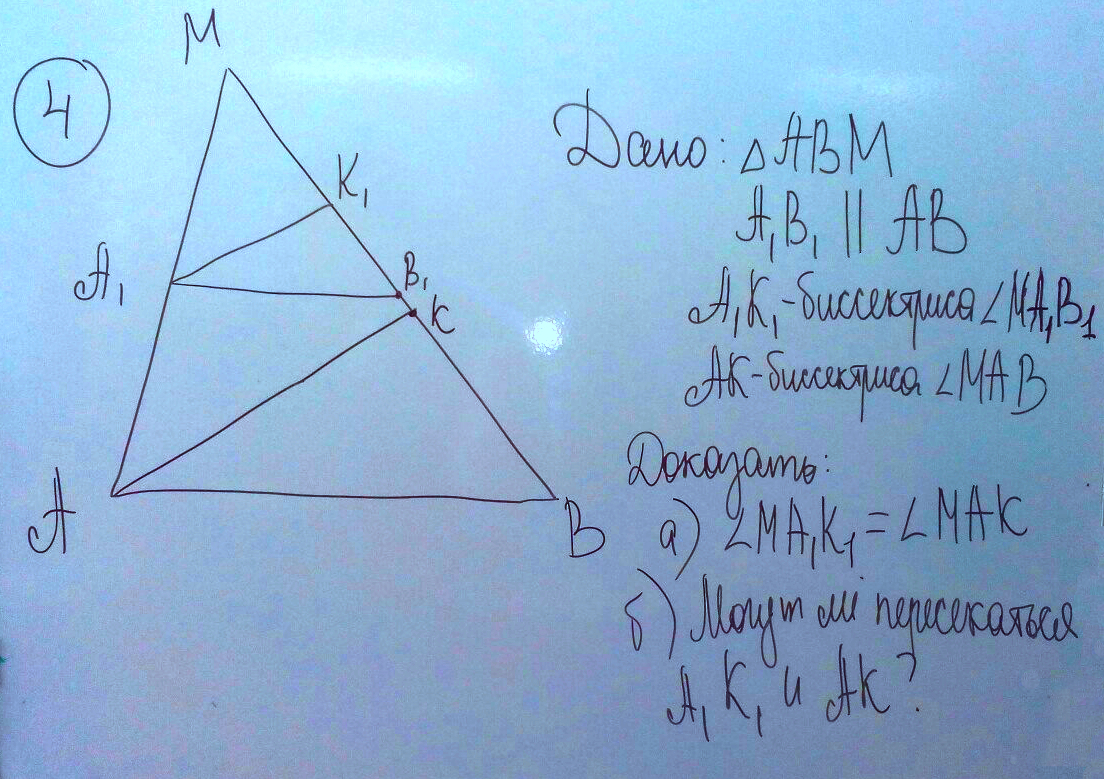 4
M
K₁
A₁
B₁
K
A
B
Дано: △ABM
A₁B₁ || AB
A₁K₁-биссектриса ∠MA₁B₁
AK-биссектриса ∠MAB
Доказать:
а) ∠MA₁K₁ = ∠MAK
б) Могут ли пересекаться
A₁K₁ и AK?